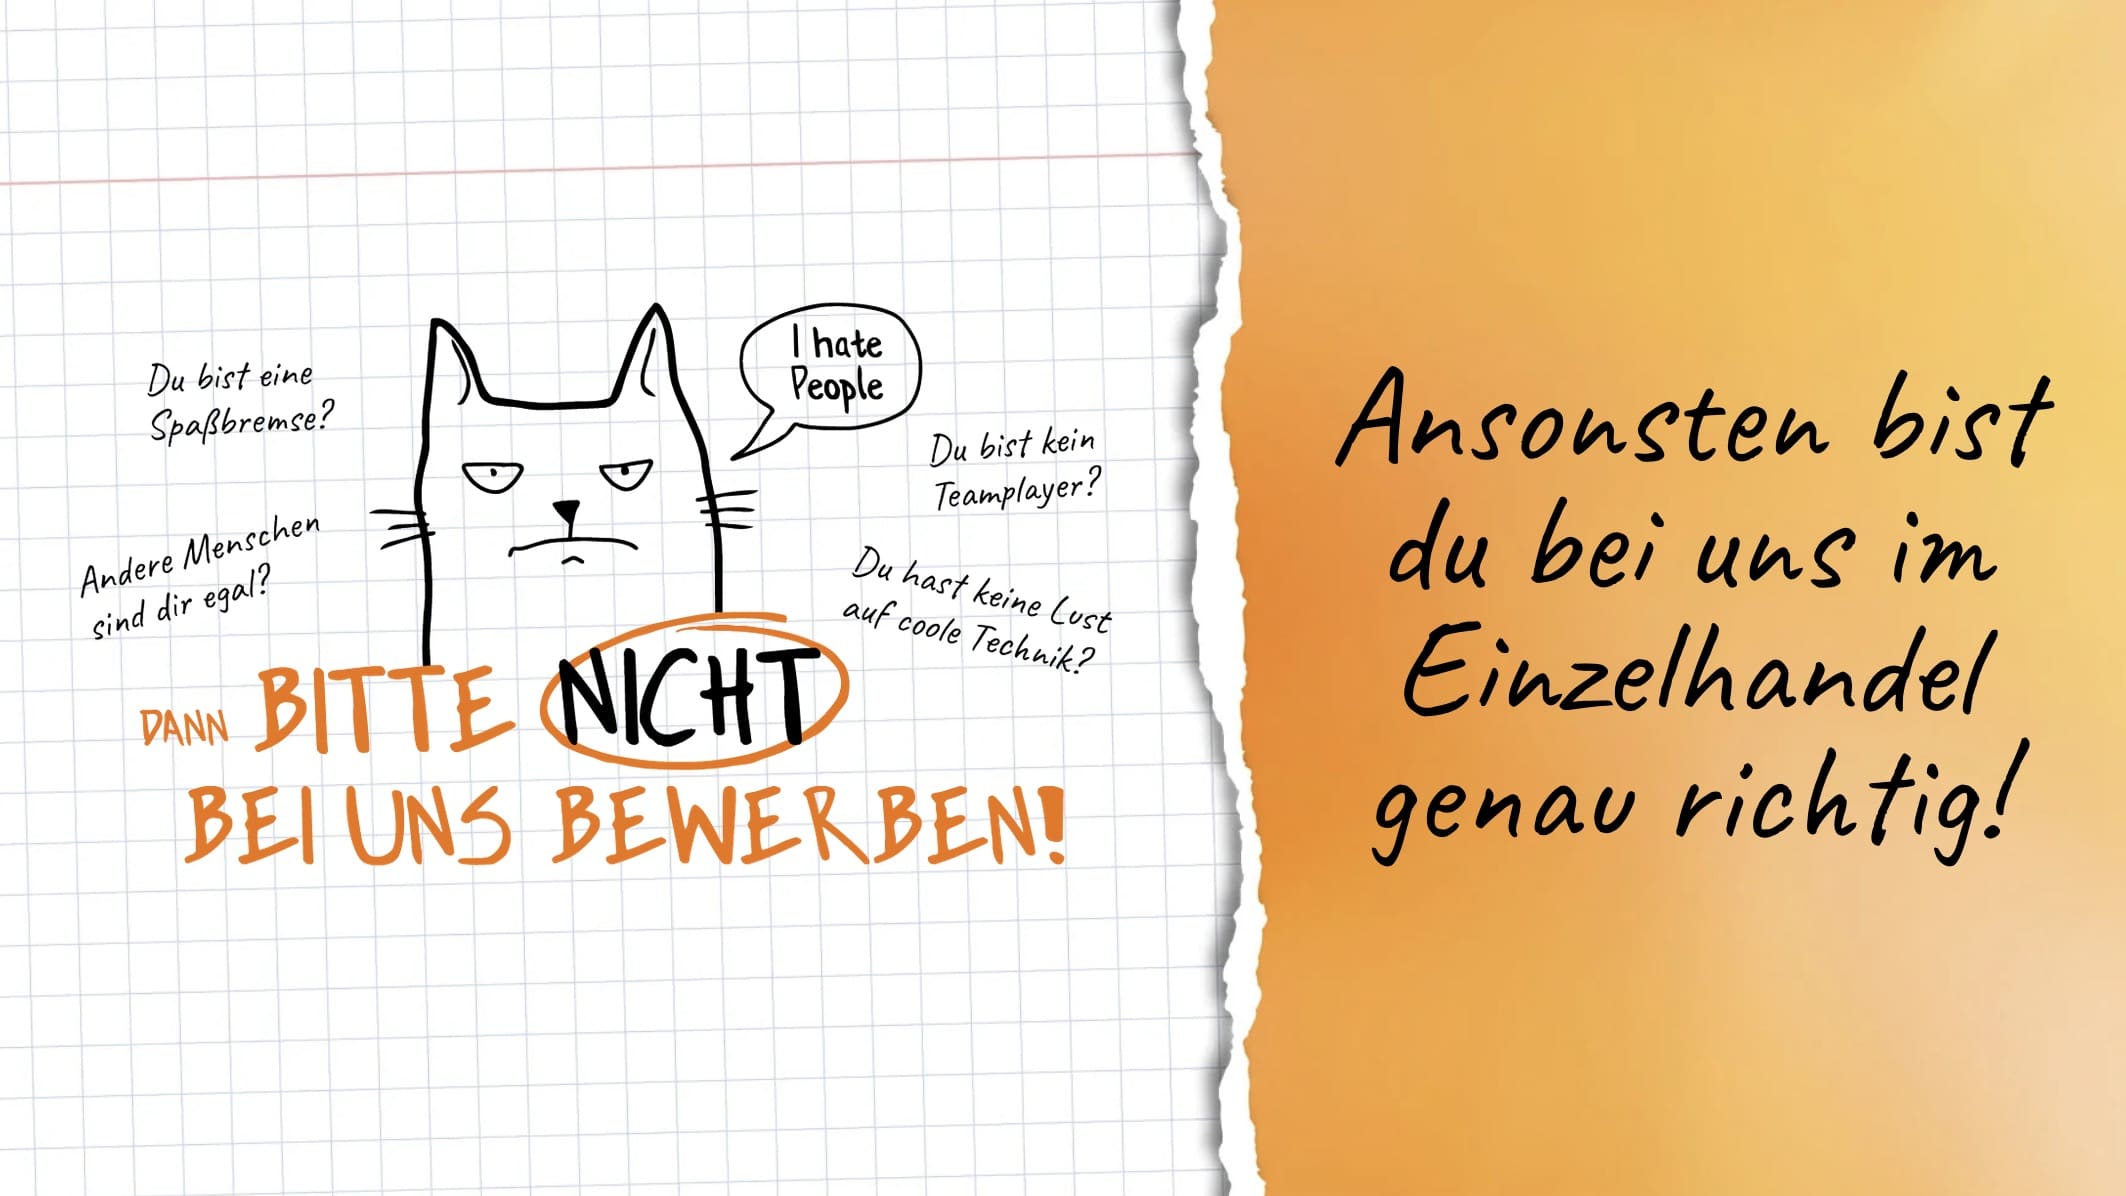 Du bist eine
Spaßbremse?
Andere Menschen
sind dir egal?
I hate
People
Du bist kein
Teamplayer?
Du hast keine Lust
auf coole Technik?
DANN BITTE NICHT
BEI UNS BEWERBEN!
Ansonsten bist
du bei uns im
Einzelhandel
genau richtig!